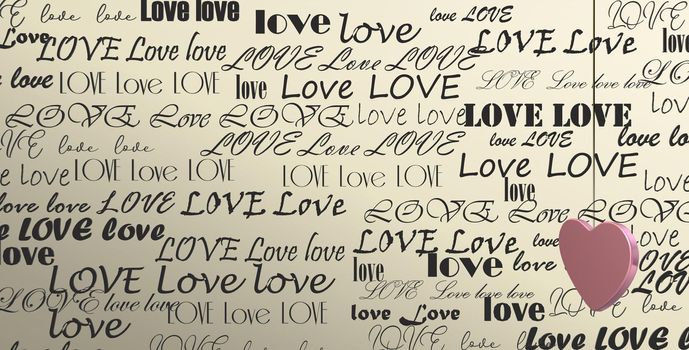 LOVE love love Love love love love love LOVE LOVE
Love LOVE Love love LOVE Love LOVE LOVE Love love
love love LOVE Love LOVE love Love LOVE LOVE Love love love LO
LOVE Love LOVE love love LOVE LOVE love
VE love love LOVE Love LOVE love LOVE love love
e love LOVE Love LOVE LOVE Love LOVE Love LOVE love
love love LOVE LOVE Love love LOVE Love LOVE
e LOVE love LOVE Love love LOVE Love love love
love LOVE Love love love love love LOVE
LOVE love love LOVE Love LOVE LOVE Love love love LOVE love
love love Love LOVE love Love LOVE love